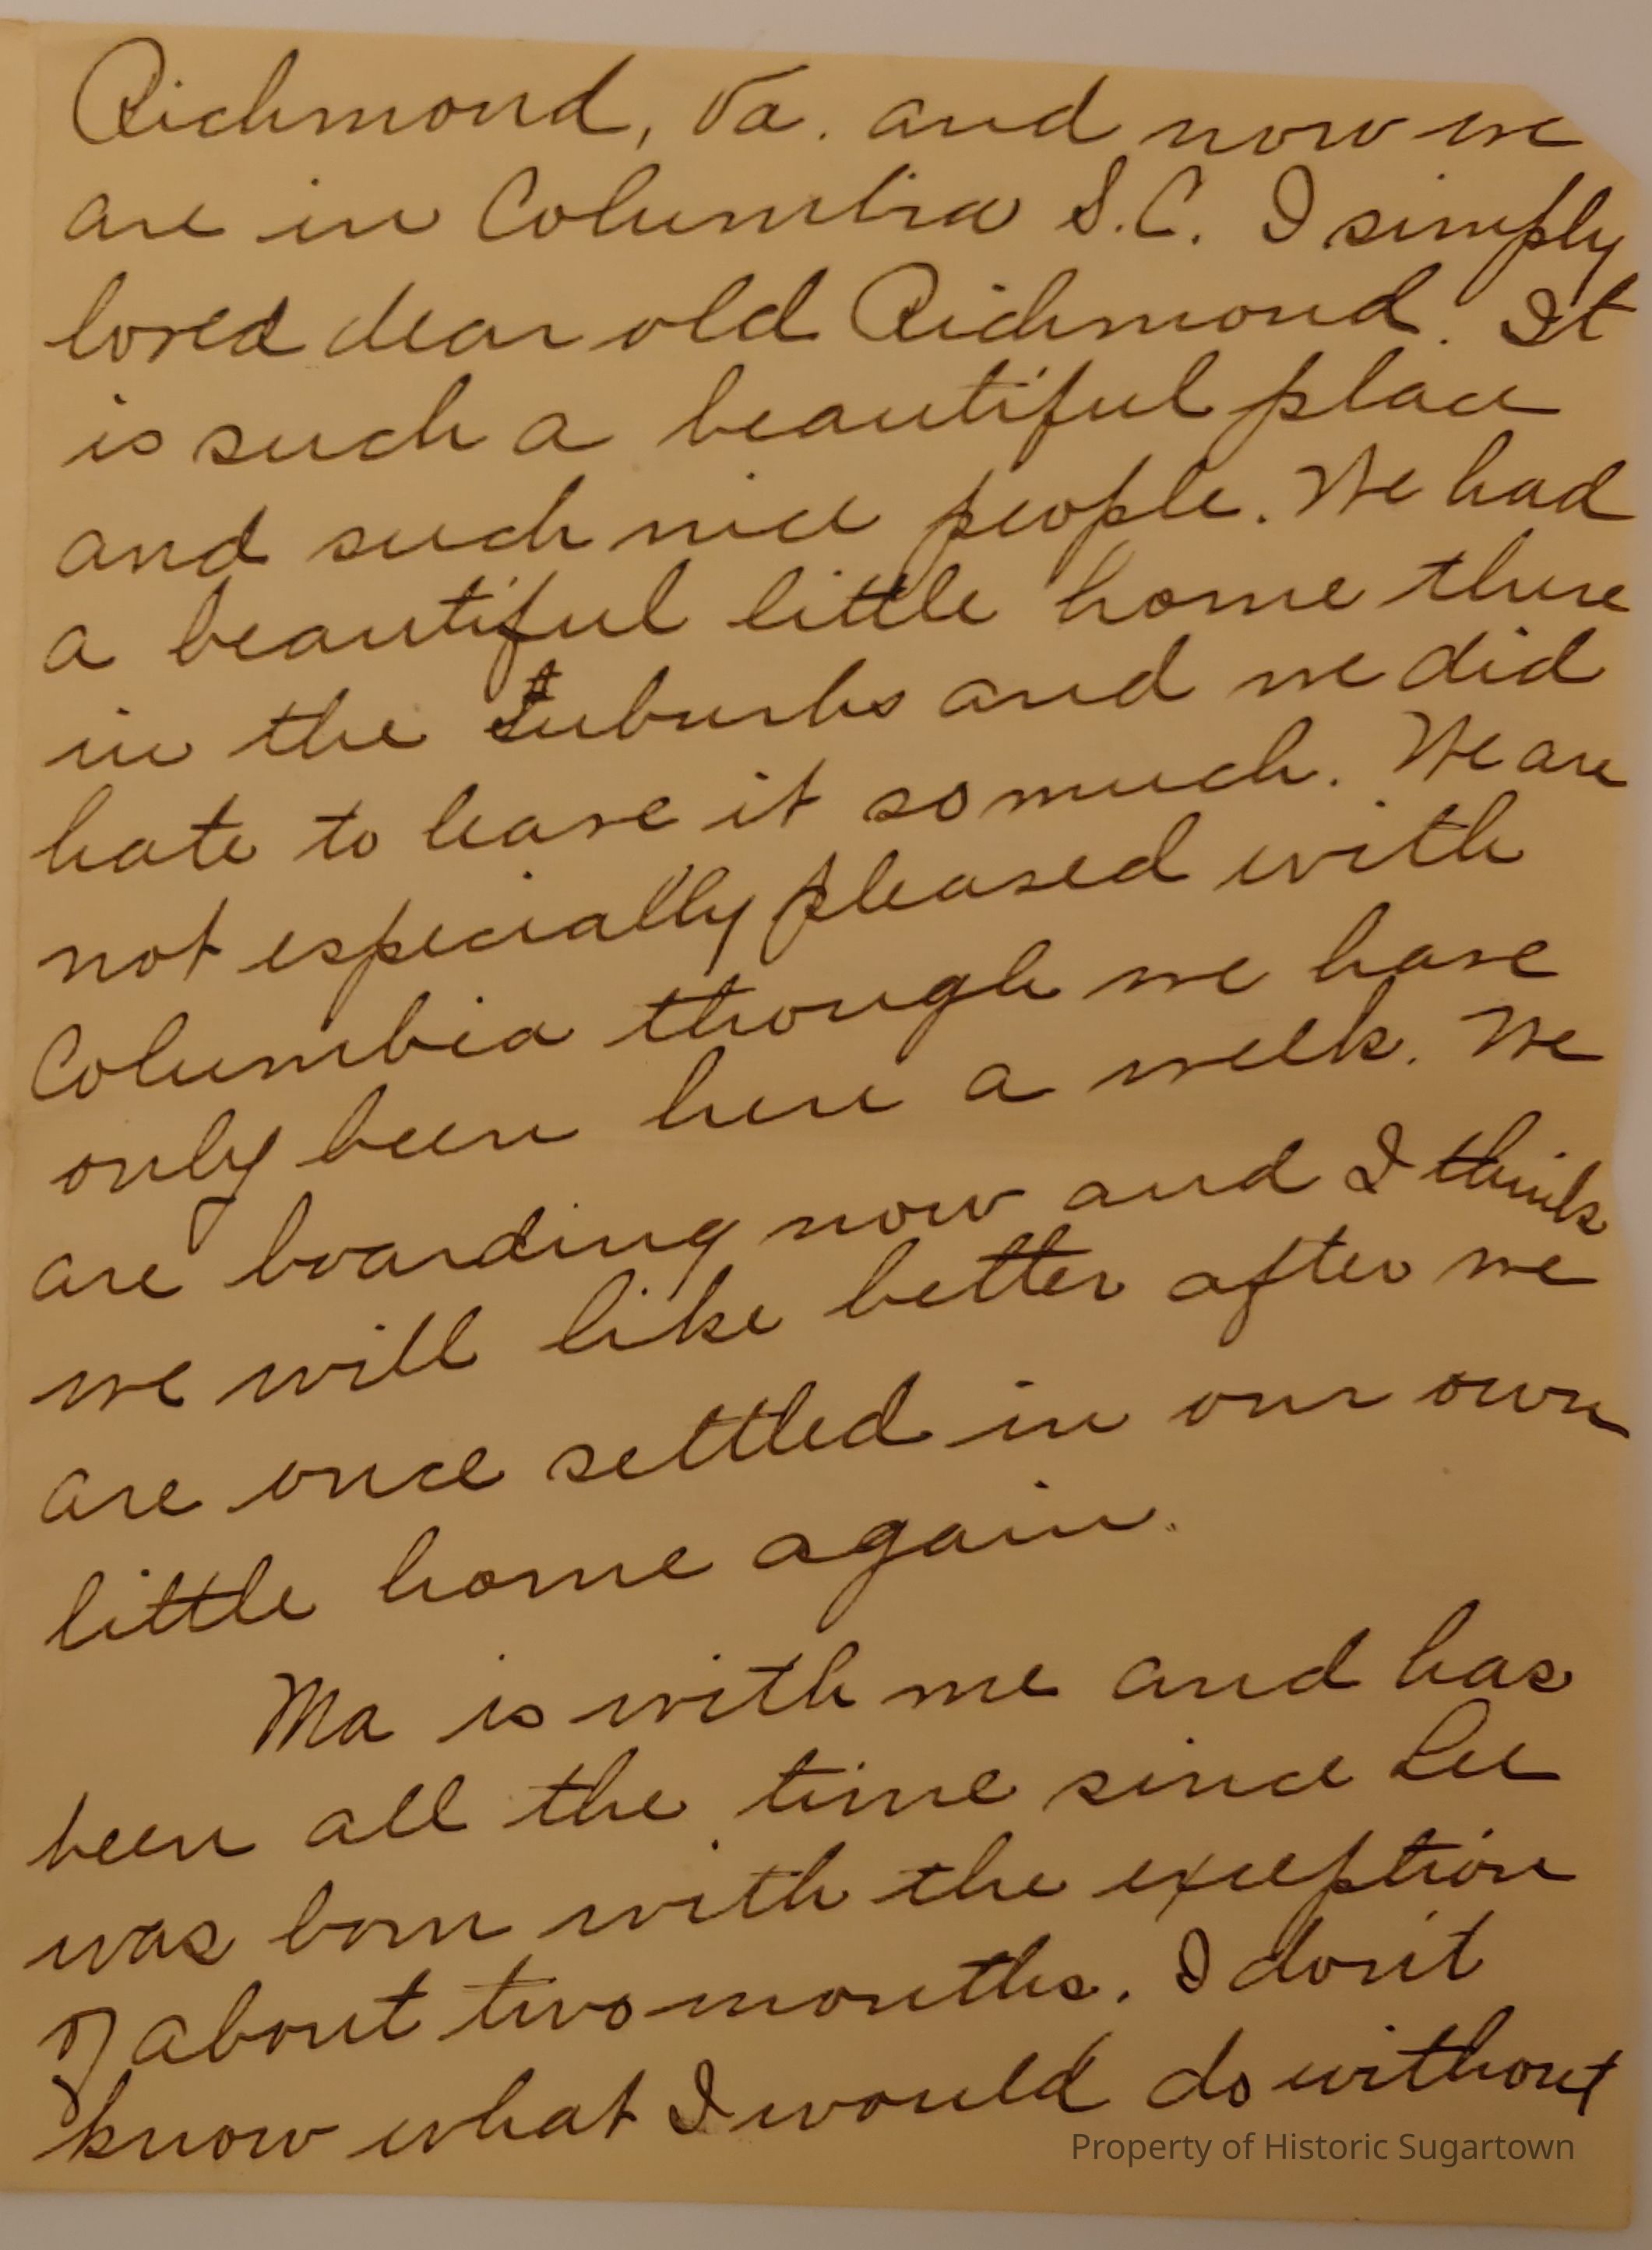 Richmond, Va. and now we
are in Columbia S.C. I simply
loved dear old Richmond. It
is such a beautiful place
and such nice people. We had
a beautiful little home there
in the suburbs and we did
hate to leave it so much. We are
not especially pleased with
Columbia though we have
only been here a week. We
are boarding now and I think
we will like better after we
are once settled in our own
little home again.
Ma is with me and has
been all the time since Lee
was born with the exception
of about two months. I don't
know what I would do without
Property of Historic Sugartown